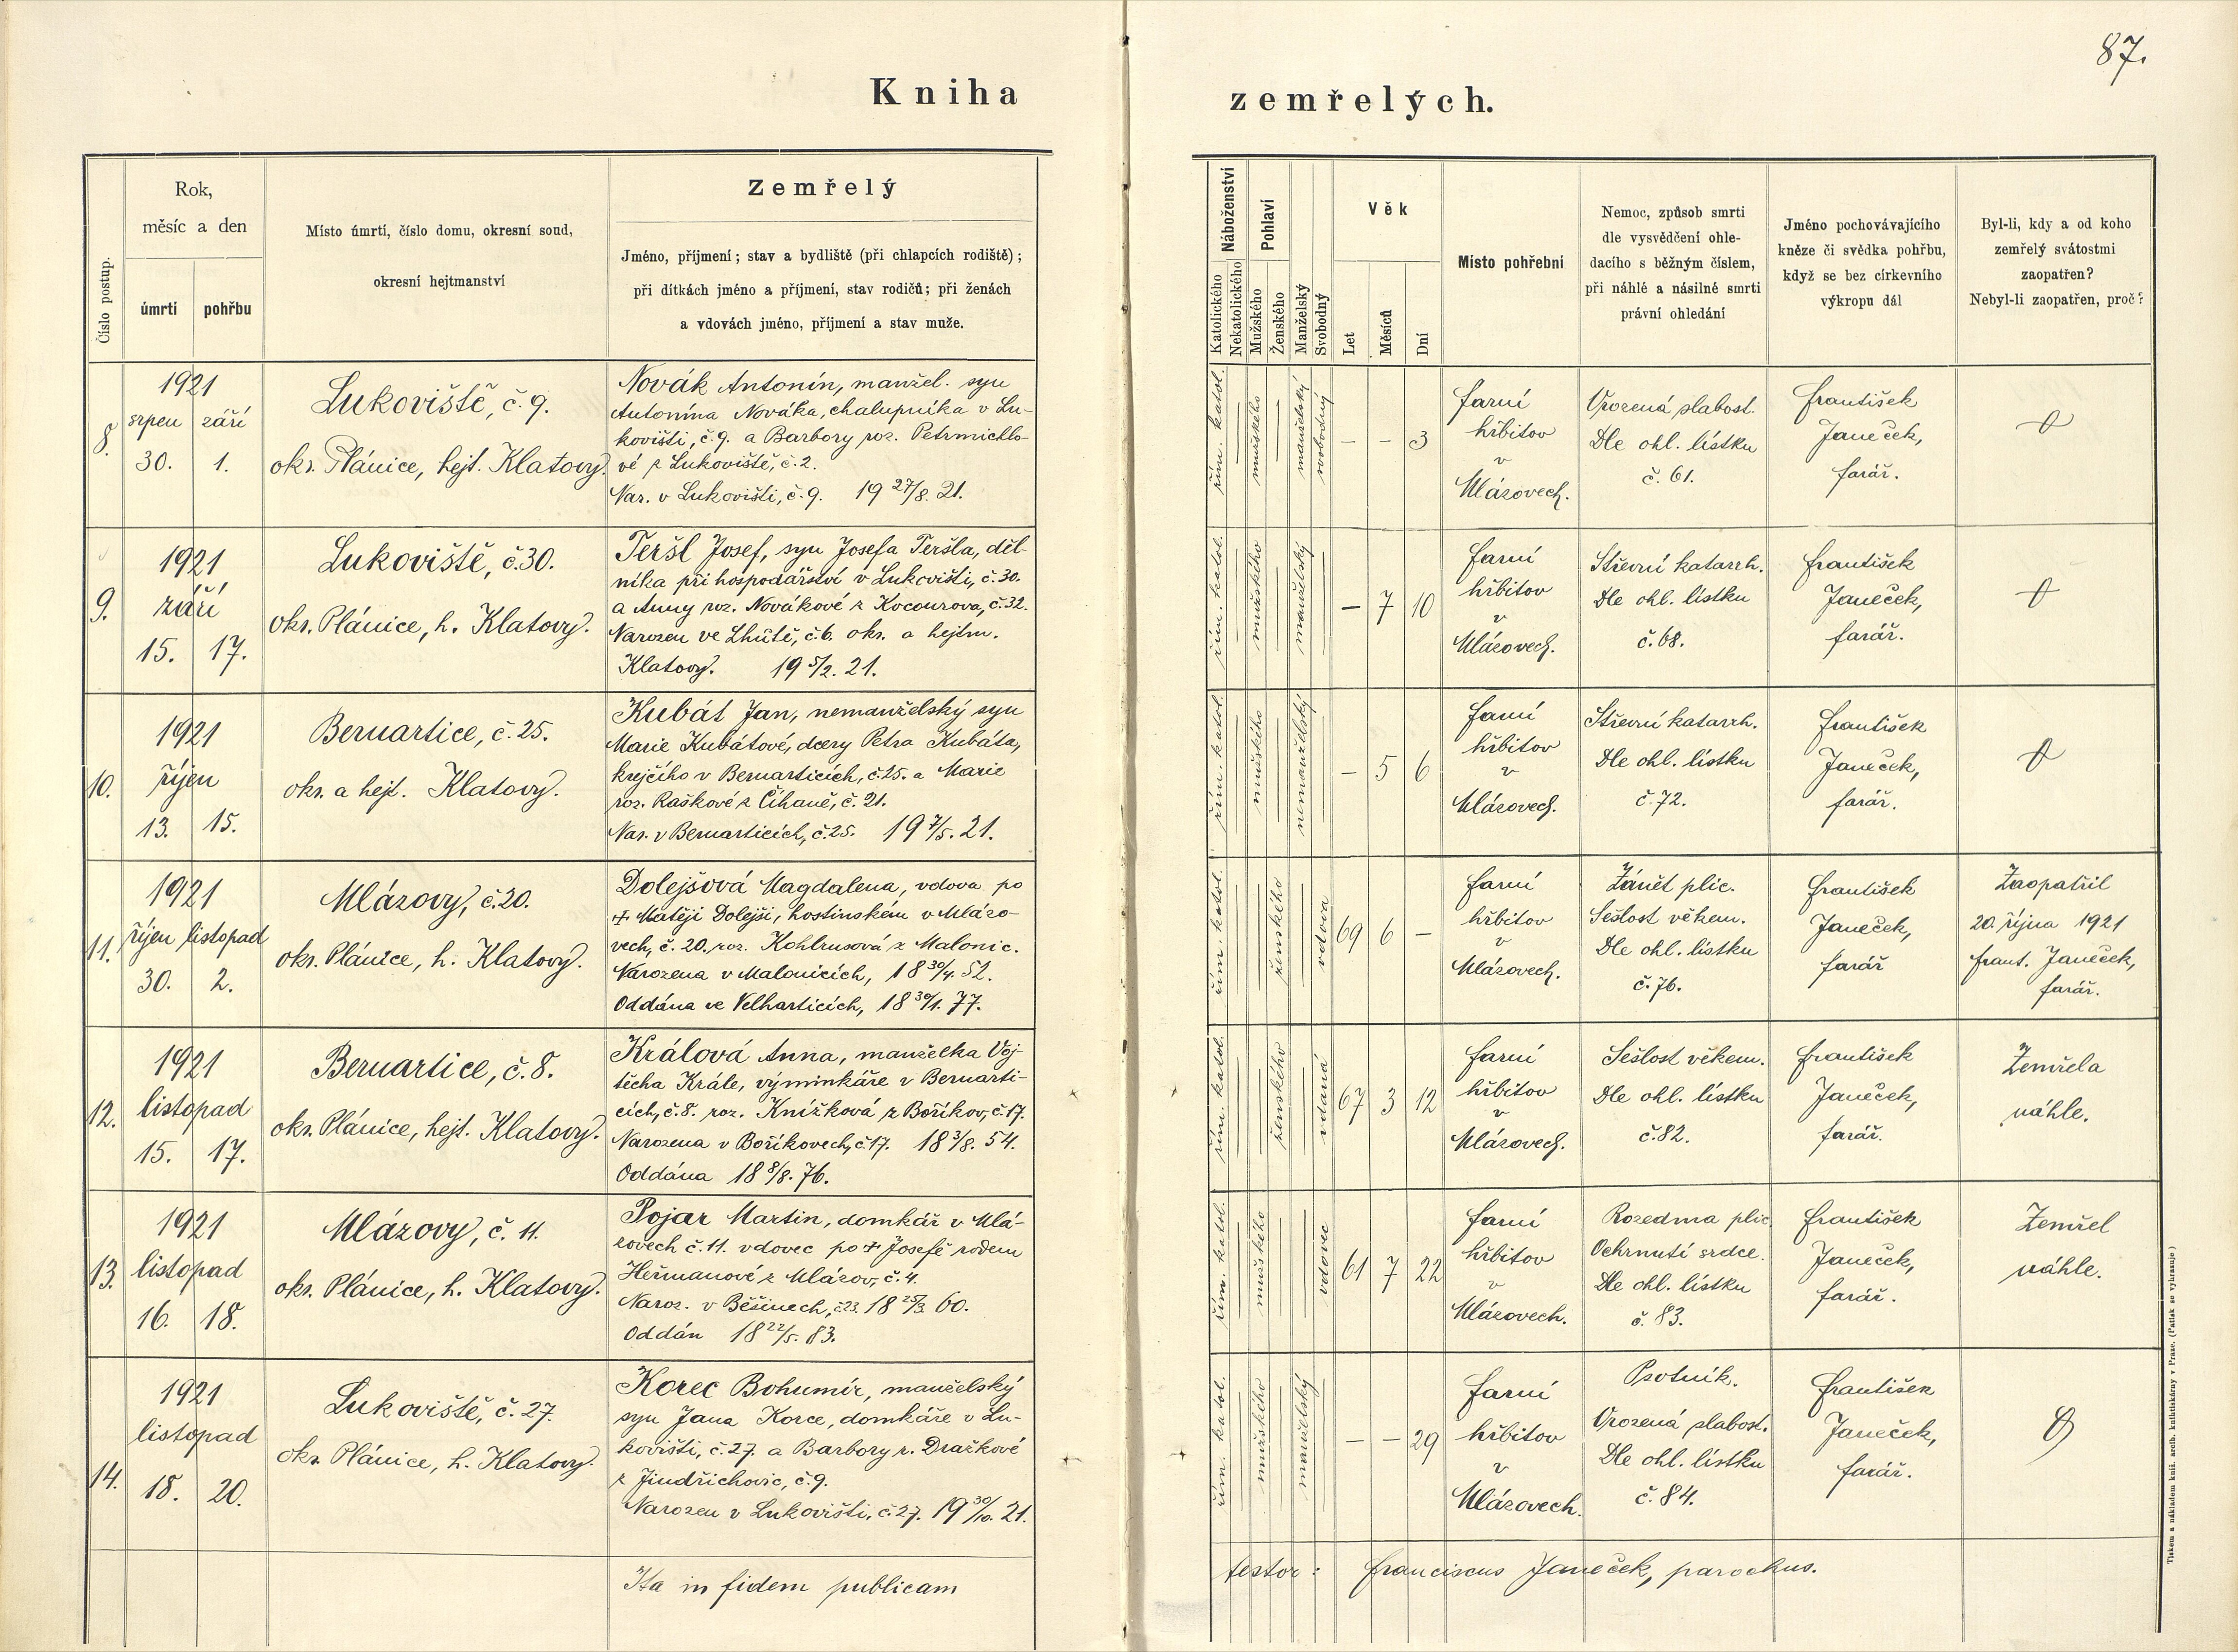 87.
Kniha zemřelých.
Číslo postup.
Rok,
měsíc a den
úmrtí
pohřbu
Místo úmrtí, číslo domu, okresní soud,
okresní hejtmanství
Zemřelý
Jméno, příjmení; stav a bydliště (při chlapcích rodiště);
při dítkách jméno a příjmení, stav rodičů; při ženách
a vdovách jméno, příjmení a stav muže.
Náboženství
Katolického
Nekatolického
Pohlaví
Mužského
Ženského
Manželský
Svobodný
Věk
Let
Měsíců
Dní
Místo pohřební
Nemoc, způsob smrti
dle vysvědčení ohle-
dacího s běžným číslem,
při náhlé a násilné smrti
právní ohledání
Jméno pochovávajícího
kněze či svědka pohřbu,
když se bez církevního
výkropu dál
Byl-li, kdy a od koho
zemřelý svátostmi
zaopatřen?
Nebyl-li zaopatřen, proč?
8.
1921
srpen září
30. 1.
Lukoviště, č. 9.
okr. Plánice, hejt. Klatovy.
Novák Antonín, manžel. syn
Antonína Nováka, chalupníka v Lu-
kovišti, č. 9. a Barbory roz. Petrmichlo-
vé z Lukoviště, č. 2.
Nar. v Lukovišti, č. 9. 19 27/8. 21.
řím. katol.
mužského
manželský
svobodný
– – 3
farní
hřbitov
v
Mlázovech.
Vrozená slabost.
Dle ohl. lístku
č. 61.
František
Janeček,
farář.
9.
1921
září
15. 17.
Lukoviště, č. 30.
okr. Plánice, h. Klatovy.
Teršl Josef, syn Josefa Teršla, děl-
níka při hospodářství v Lukovišti, č. 30.
a Anny roz. Novákové z Kocourova, č. 32.
Narozen ve Lhůtě, č. 6. okr. a hejtm.
Klatovy. 19 5/2. 21.
řím. katol.
mužského
manželský
– 7 10
farní
hřbitov
v
Mlázovech.
Střevní katarrh.
Dle ohl. lístku
č. 68.
František
Janeček,
farář.
10.
1921
říjen
13. 15.
Bernartice, č. 25.
okr. a hejt. Klatovy.
Kubát Jan, nemanželský syn
Marie Kubátové, dcery Petra Kubáta,
krejčího v Bernarticích, č. 25. a Marie
roz. Raškové z Číhaně, č. 21.
Nar. v Bernarticích, č. 25. 19 7/5. 21.
řím. katol.
mužského
nemanželský
– 5 6
farní
hřbitov
v
Mlázovech.
Střevní katarrh.
Dle ohl. lístku
č. 72.
František
Janeček,
farář.
11.
1921
říjen listopad
30. 2.
Mlázovy, č. 20.
okr. Plánice, h. Klatovy.
Dolejšová Magdalena, vdova po
† Matěji Dolejši, hostinském v Mlázo-
vech, č. 20., roz. Kohlrusová z Malonic.
Narozena v Malonicích, 18 30/4. 52.
Oddána ve Velharticích, 18 30/1. 77.
řím. katol.
ženského
vdova
69 6 –
farní
hřbitov
v
Mlázovech.
Zánět plic.
Sešlost věkem.
Dle ohl. lístku
č. 76.
František
Janeček,
farář
Zaopatřil
20. října 1921
Frant. Janeček,
farář.
12.
1921
listopad
15. 17.
Bernartice, č. 8.
okr. Plánice, hejt. Klatovy.
Králová Anna, manželka Voj-
těcha Krále, výminkáře v Bernarti-
cích, č. 8. roz. Knížková z Boříkov, č. 17.
Narozena v Boříkovech, č. 17. 18 3/8. 54.
Oddána 18 8/8. 76.
řím. katol.
ženského
vdaná
67 3 12
farní
hřbitov
v
Mlázovech.
Sešlost věkem.
Dle ohl. lístku
č. 82.
František
Janeček,
farář.
Zemřela
náhle.
13.
1921
listopad
16. 18.
Mlázovy, č. 11.
okr. Plánice, h. Klatovy.
Pojar Martin, domkář v Mlá-
zovech č. 11. vdovec po † Josefě rodem
Heřmanové z Mlázov, č. 4.
Naroz. v Běšinech, č. 23. 18 25/3. 60.
Oddán 18 22/5. 83.
řím. katol.
mužského
vdovec
61 7 22
farní
hřbitov
v
Mlázovech.
Rozedma plic
Ochrnutí srdce.
Dle ohl. lístku
č. 83.
František
Janeček,
farář.
Zemřel
náhle.
14.
1921
listopad
18. 20.
Lukoviště, č. 27.
okr. Plánice, h. Klatovy.
Korec Bohumír, manželský
syn Jana Korce, domkáře v Lu-
kovišti, č. 27. a Barbory r. Dražkové
z Jindřichovic, č. 9.
Narozen v Lukovišti, č. 27. 19 30/10. 21.
řím. katol.
mužského
manželský
– – 29
farní
hřbitov
v
Mlázovech.
Psotník.
Vrozená slabost.
Dle ohl. lístku
č. 84.
František
Janeček,
farář.
Ita in fidem publicam testor: Franciscus Janeček, parochus.
Tiskem a nákladem kníž. arcib. knihtiskárny v Praze. (Patisk se vyhrazuje)